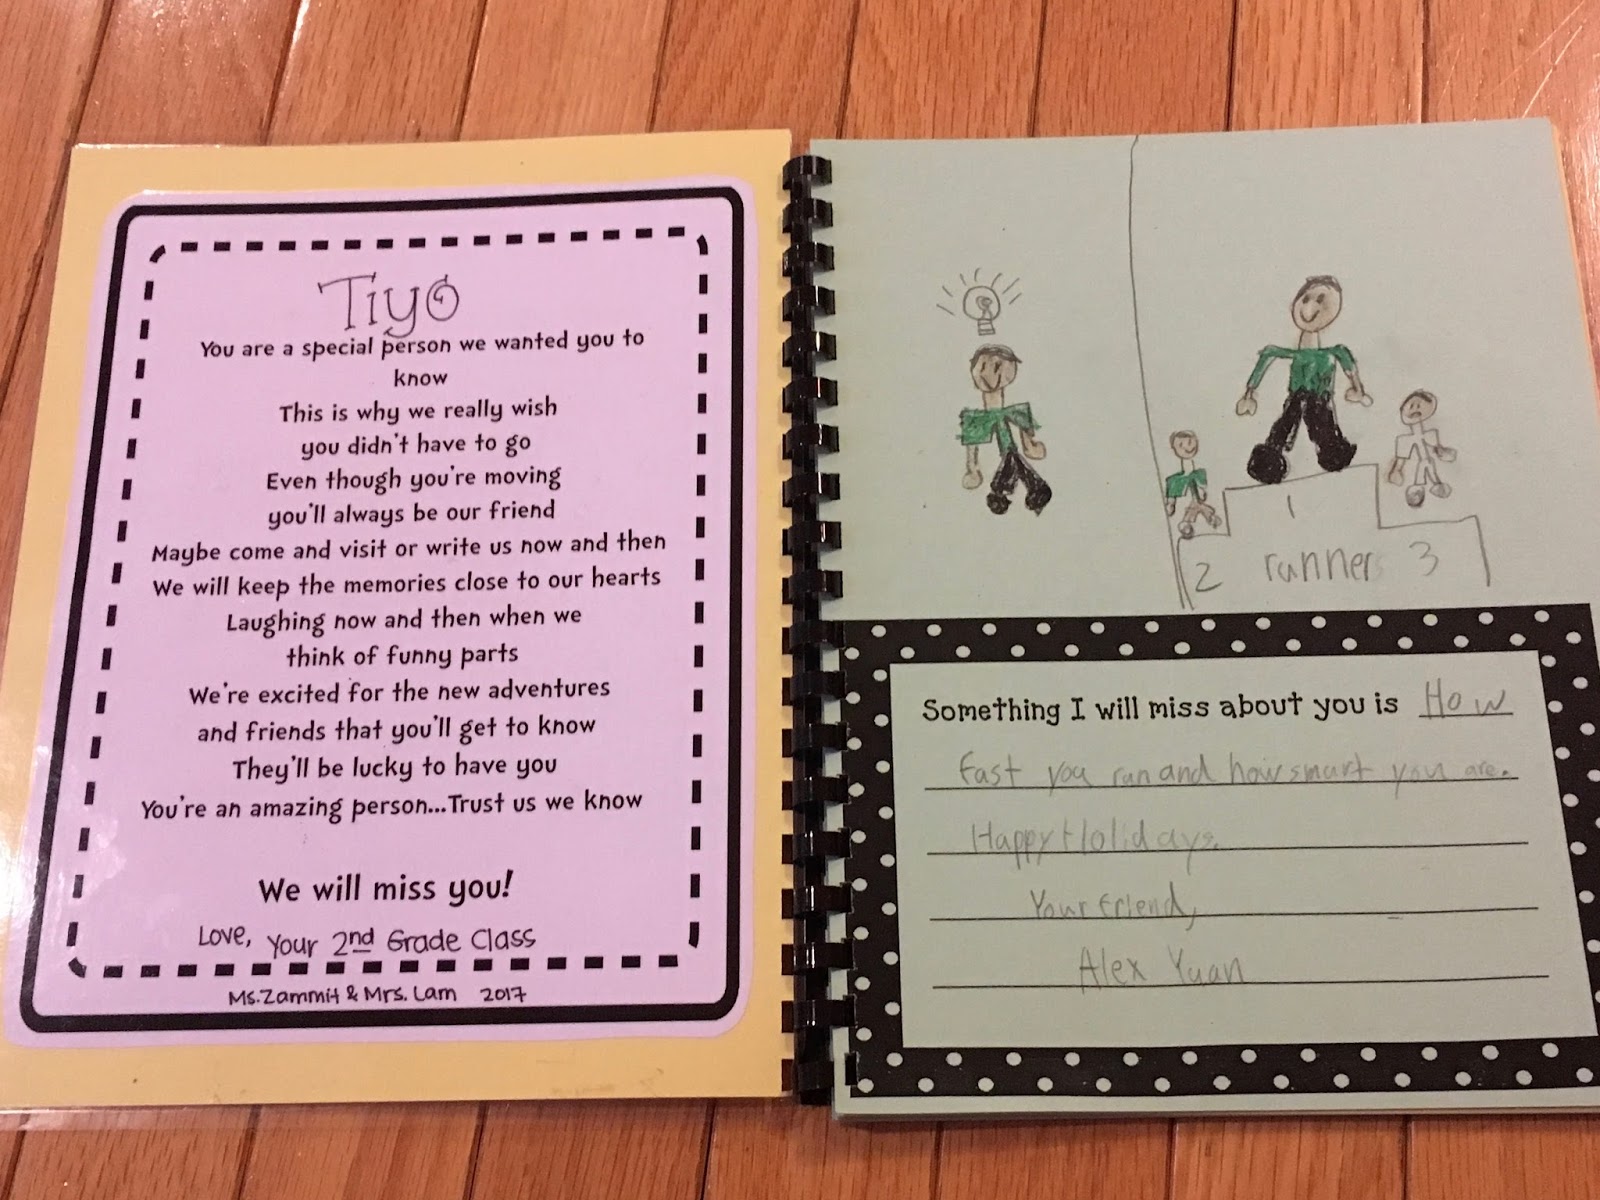 Tiyo
You are a special person we wanted you to
know
This is why we really wish
you didn't have to go
Even though you're moving
you'll always be our friend
Maybe come and visit or write us now and then
We will keep the memories close to our hearts
Laughing now and then when we
think of funny parts
We're excited for the new adventures
and friends that you'll get to know
They'll be lucky to have you
You're an amazing person...Trust us we know
We will miss you!
Love, Your 2nd Grade Class
Ms.Zammit & Mrs. Lam 2017
1
2 runners 3
Something I will miss about you is How
fast you run and how smart you are.
Happy Holidays.
Your friend,
Alex Yuan